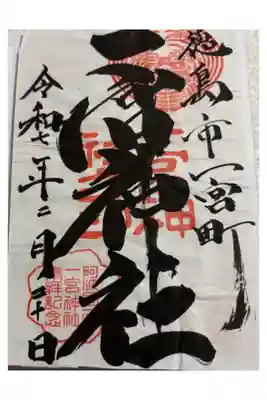 徳島市一宮町
一宮神社
令和七年二月二十日
一宮神
社之印
一宮神社
参拝記念